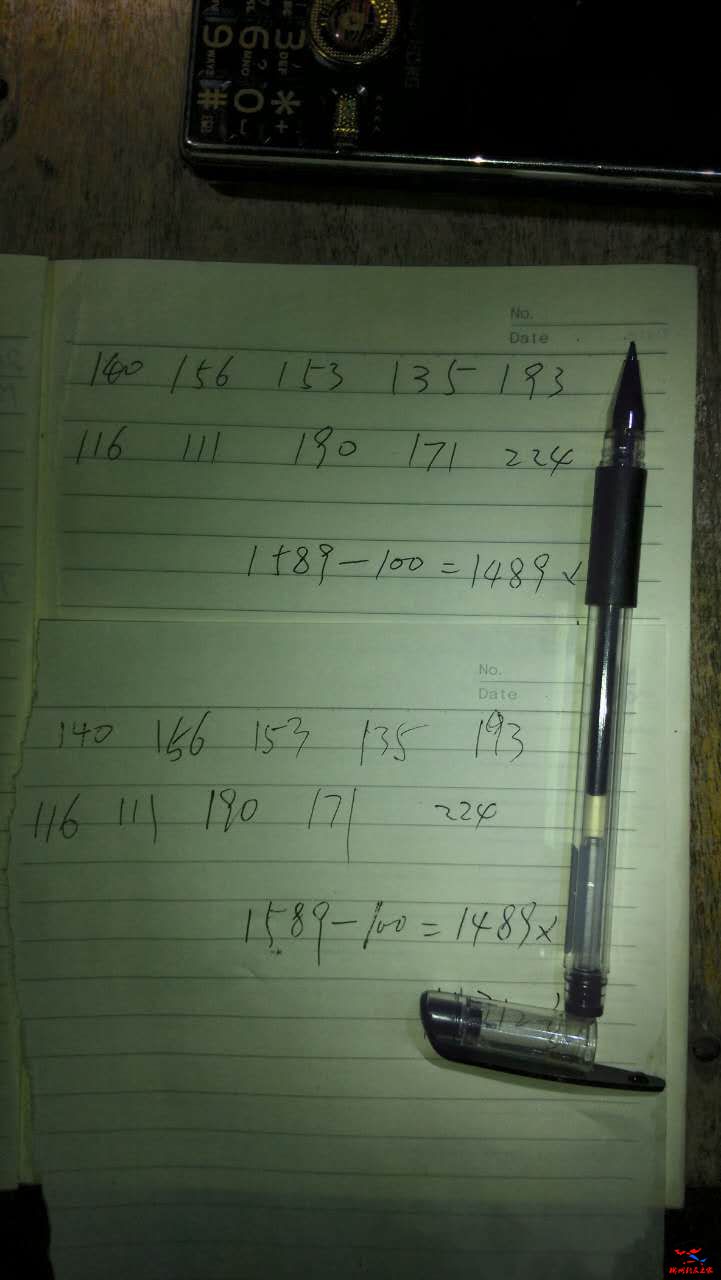 3 DEF
6 MNO
9 WXYZ
* +
0
#
No.
Date
140 156 153 135 193
116 111 190 171 224
1589-100=1489×
No.
Date
140 156 153 135 193
116 111 190 171 224
1589-100=1489×